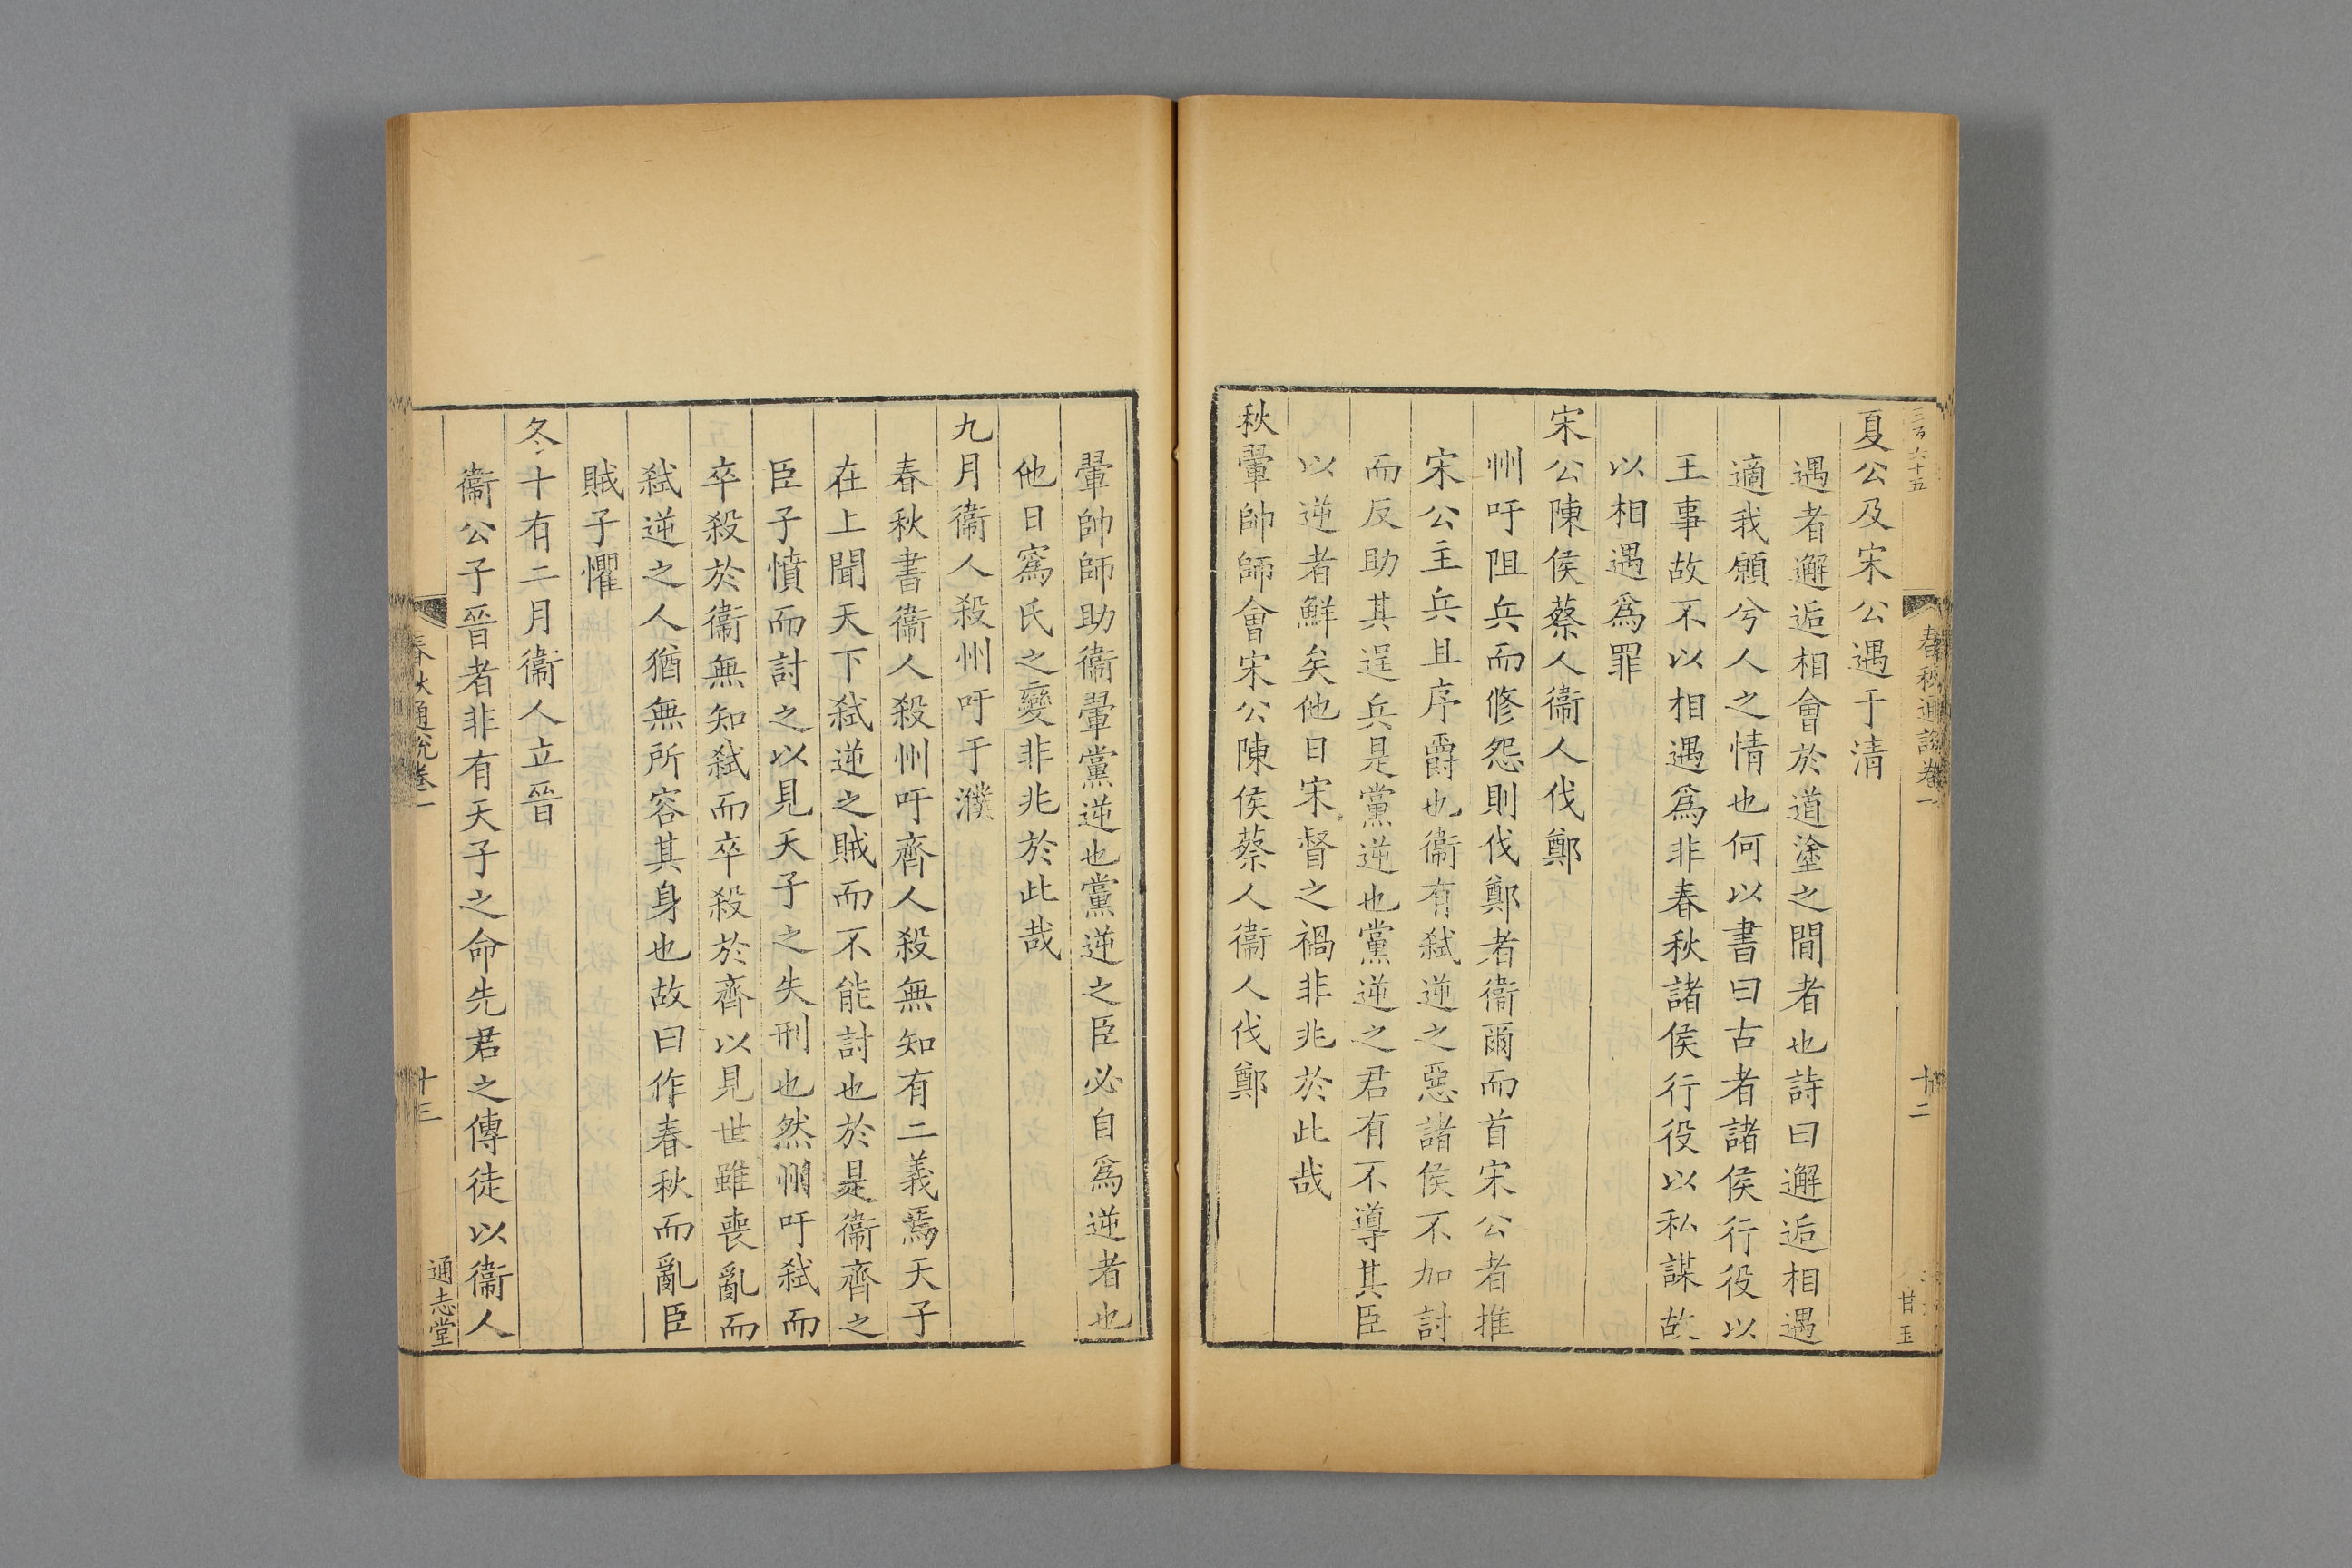 三百六十五
春秋通說卷一
十二
甘玉
夏公及宋公遇于清
遇者邂逅相會於道塗之間者也詩曰邂逅相遇
適我願兮人之情也何以書曰古者諸侯行役以
王事故不以相遇爲非春秋諸侯行役以私謀故
以相遇爲罪
宋公陳侯蔡人衞人伐鄭
州吁阻兵而修怨則伐鄭者衞爾而首宋公者推
宋公主兵且序爵也衞有弑逆之惡諸侯不加討
而反助其逞兵是黨逆也黨逆之君有不導其臣
以逆者鮮矣他日宋督之禍非兆於此哉
秋翬帥師會宋公陳侯蔡人衞人伐鄭
翬帥師助衞翬黨逆也黨逆之臣必自爲逆者也
他日寪氏之變非兆於此哉
九月衞人殺州吁于濮
春秋書衞人殺州吁齊人殺無知有二義焉天子
在上聞天下弑逆之賊而不能討也於是衞齊之
臣子憤而討之以見天子之失刑也然州吁弑而
卒殺於衞無知弑而卒殺於齊以見世雖喪亂而
弑逆之人猶無所容其身也故曰作春秋而亂臣
賊子懼
冬十有二月衞人立晉
衞公子晉者非有天子之命先君之傳徒以衞人
春秋通說卷一
十三
通志堂